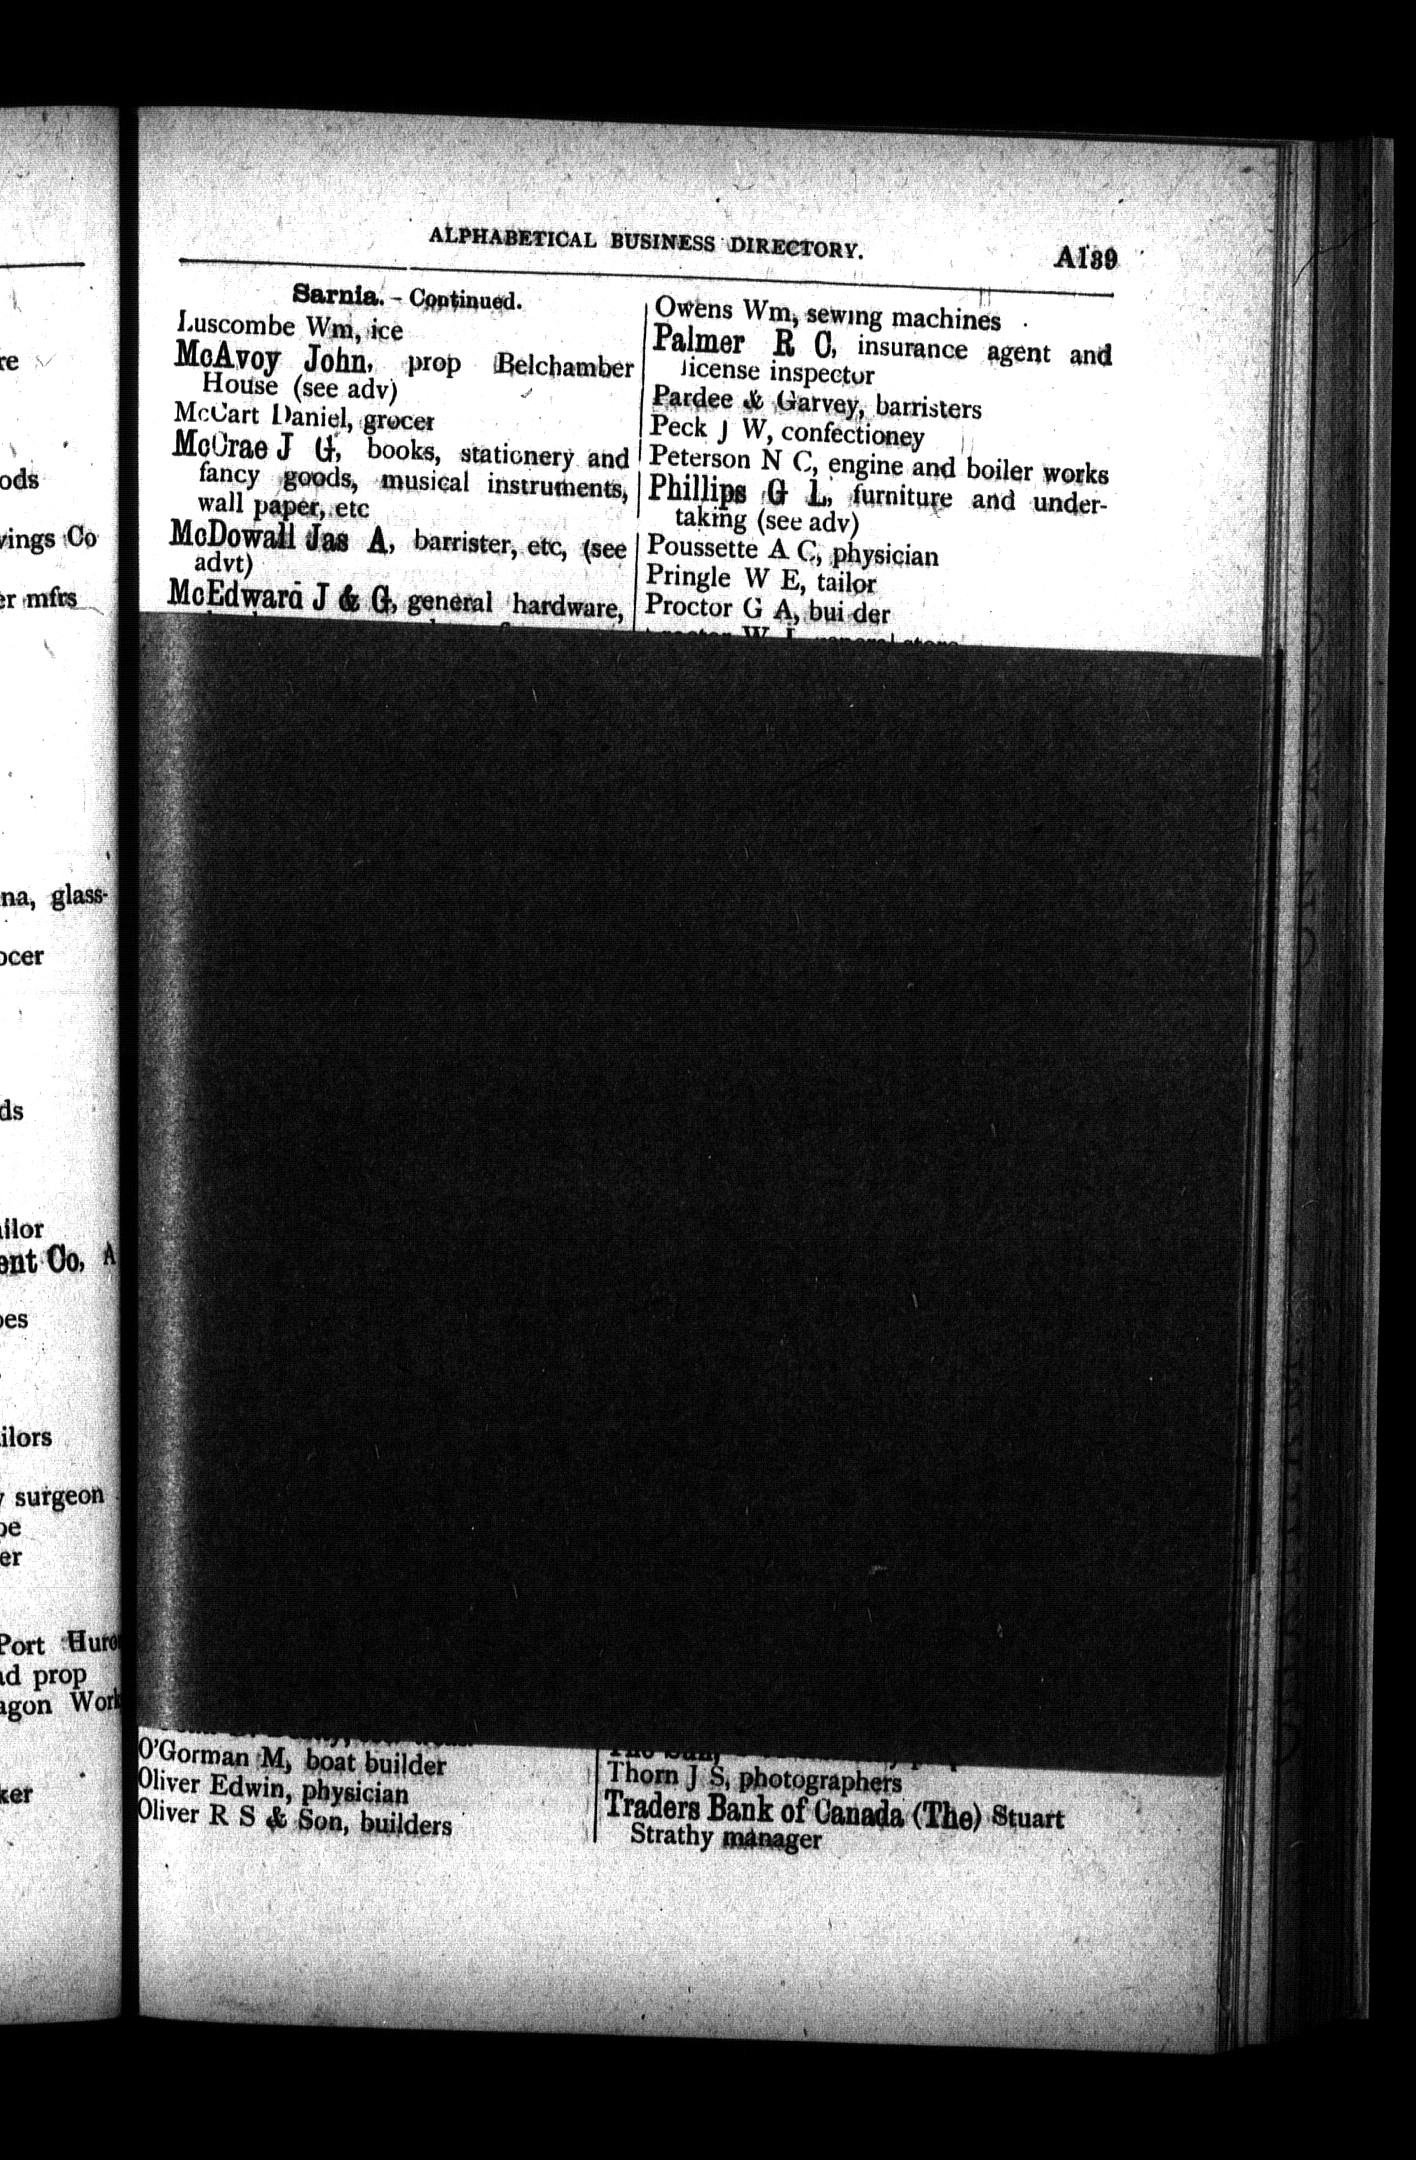 ALPHABETICAL BUSINESS DIRECTORY.
A189
Sarnia. - Continued.
Luscombe Wm, ice
McAvoy John, prop Belchamber
House (see adv)
McCart Daniel, grocer
McCrae J G, books, stationery and
fancy goods, musical instruments,
wall paper, etc
McDowall Jas A, barrister, etc, (see
advt)
McEdward J & G, general hardware,
O'Gorman M, boat builder
Oliver Edwin, physician
Oliver R S & Son, builders
Owens Wm, sewing machines
Palmer R C, insurance agent and
license inspector
Pardee & Garvey, barristers
Peck J W, confectioney
Peterson N C, engine and boiler works
Phillips G L, furniture and under-
taking (see adv)
Poussette A C, physician
Pringle W E, tailor
Proctor G A, bui der
W J general store
Thorn J S, photographers
Traders Bank of Canada (The) Stuart
Strathy manager
re
ods
vings Co
er mfrs
na, glass-
ocer
ds
ailor
ent Co, A
oes
ilors
y surgeon
oe
er
Port Huro
nd prop
agon Work
ker